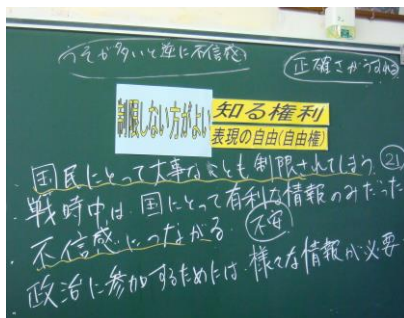 うそが多いと逆に不信感
正確さがうすれる
制限しない方がよい
知る権利
表現の自由(自由権)
・国民にとって大事なことも制限されてしまう ㉑
・戦時中は、国にとって有利な情報のみだった
・不信感につながる 不安
・政治に参加するためには、様々な情報が必要